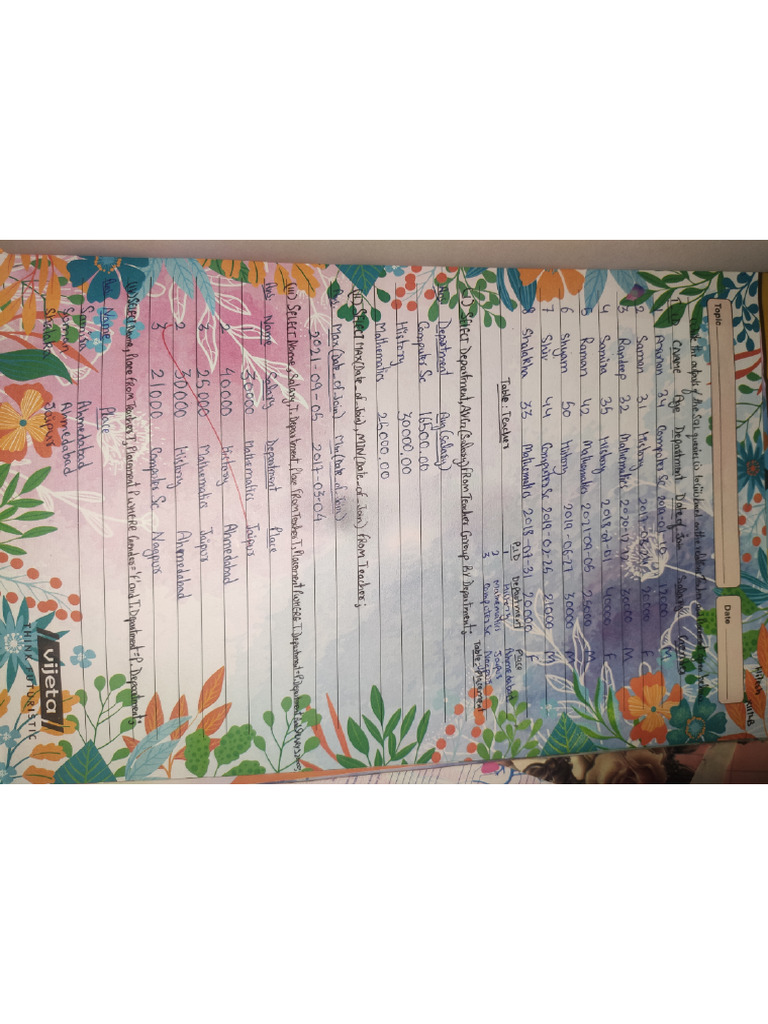 Topic
Date
T.ID Cname Age Department Date of Join Salary Gender
1 Arunan 34 Computer Sc 2019-01-10 12000 M
2 Saman 31 History 2017-03-24 20000 F
3 Randeep 32 Mathematics 2020-12-12 30000 M
4 Samira 35 History 2018-01-01 40000 F
5 Raman 42 Mathematics 2021-09-05 25000 M
6 Shyam 50 History 2019-06-27 30000 M
7 Shiv 44 Computer Sc 2019-02-25 21000 M
8 Shalakha 33 Mathematics 2018-07-31 20000 F
Table: Teacher
P.ID Department Place
History Ahmedabad
2 Mathematics Jaipur
3 Computer Sc Nagpur
Table: Placement
(i) Select Department, AVG(Salary) From Teacher Group By Department;
Department Avg(Salary)
Computer Sc 16500.00
History 30000.00
Mathematics 25000.00
(ii) Select Max(Date_of_Join), MIN(Date_of_Join) From Teacher;
Ans: Max(Date_of_Join) Min(Date_of_Join)
2021-09-05 2017-03-04
(iii) Select Name, Salary, T.Department, Place From Teacher T, Placement P WHERE T.Department=P.Department
Ans: Name Salary Department Place
1 30000 Mathematics Jaipur
2 40000 History Ahmedabad
3 25000 Mathematics Jaipur
2 30000 History Ahmedabad
21000 Computer Sc Nagpur
(iv) Select Name, Place From Teacher T, Placement P WHERE Gender='F' and T.Department=P.Department;
Name Place
Samira Ahmedabad
Saman Ahmedabad
Shalaka Jaipur
vijeta
THINK FUTURISTIC